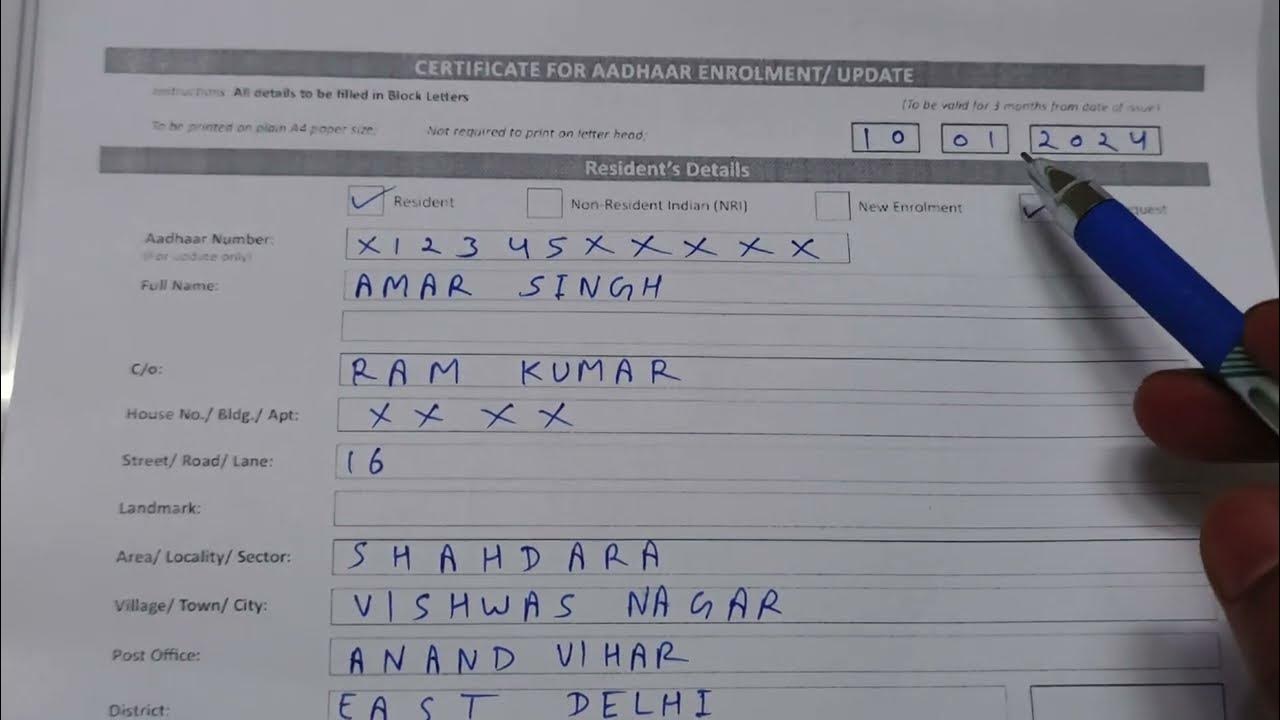 CERTIFICATE FOR AADHAAR ENROLMENT/ UPDATE
Instructions: All details to be filled in Block Letters
(To be valid for 3 months from date of issue)
To be printed on plain A4 paper size; Not required to print on letter head;
10 01 2024
Resident's Details
Resident Non-Resident Indian (NRI) New Enrolment quest
Aadhaar Number: X12345XXXXX
(For update only)
Full Name: AMAR SINGH
C/o: RAM KUMAR
House No./ Bldg./ Apt: XXXX
Street/ Road/ Lane: 16
Landmark:
Area/ Locality/ Sector: SHAHDARA
Village/ Town/ City: VISHWAS NAGAR
Post Office: ANAND VIHAR
District: EAST DELHI